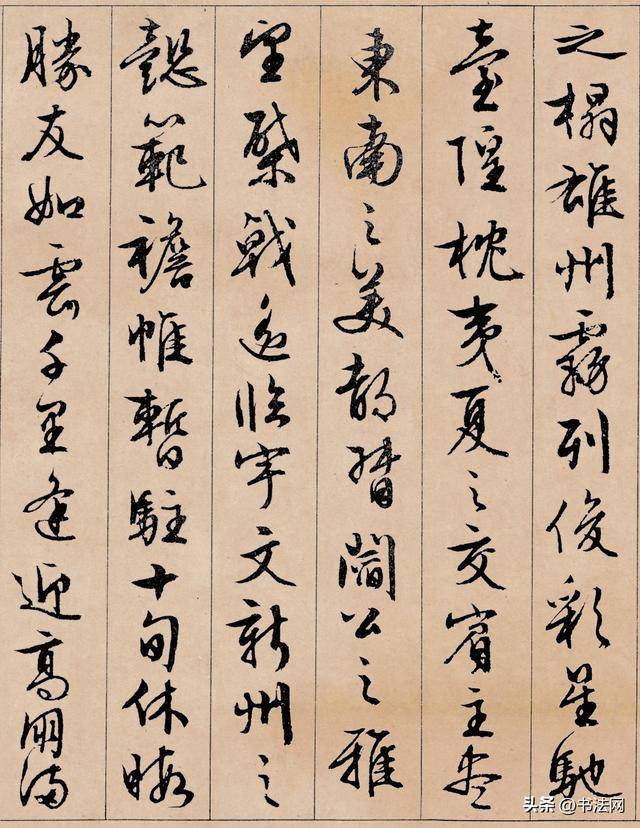 之榻雄州霧列俊彩星馳
臺隍枕夷夏之交賓主盡
東南之美都督閻公之雅
望棨戟遙臨宇文新州之
懿範襜帷暫駐十旬休暇
勝友如雲千里逢迎高朋滿
头条 @书法网